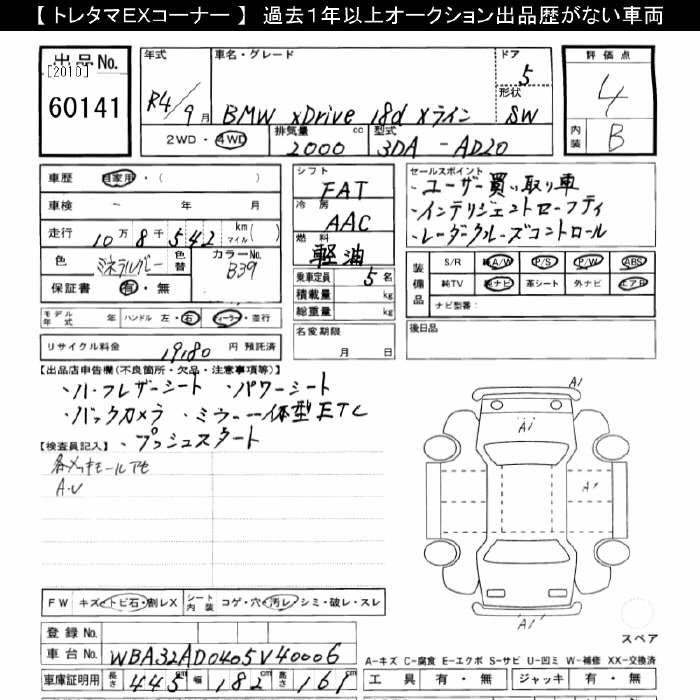 【 トレタマEXコーナー 】 過去1年以上オークション出品歴がない車両
出品No.
[2010]
60141
年式
R4/9月
車名・グレード
BMW xDrive 18d xライン
ドア
5
形状
SW
評価点
4
内装
B
2WD・4WD
排気量
2000 cc
型式
3DA - AD20
車歴 自家用・( )
車検 - 年 月
走行 10万8千542 km マイル( )
色 ミネラルグレー 色替 カラーNo. B39
保証書 有・無
モデル年式 年 ハンドル 左・右 ディーラー・並行
リサイクル料金 19180 円 預託済
シフト
FAT
冷房
AAC
燃料
軽油
乗車定員 5名
積載量 kg
総重量 kg
名変期限
月 日
セールスポイント
・ユーザー買い取り車
・インテリジェントセーフティ
・レーダークルーズコントロール
装備品
S/R 純A/W P/S P/W ABS
純TV 純ナビ 革シート 外ナビ エアB
ナビ型番:
後日品
【出品店申告欄(不良箇所・欠品・注意事項等)】
・ハーフレザーシート ・パワーシート
・バックカメラ ・ミラー一体型ETC
・プッシュスタート
【検査員記入】
A・U
A1
A1
A1
A1
FW キズ・トビ石・割レX シート内装 コゲ・穴・汚レ・シミ・破レ・スレ
登録No.
車台No. WBA32AD0405V40006
車庫証明用 長さ 445cm 幅 182cm 高さ 161cm
スペア
A-キズ C-腐食 E-エクボ S-サビ U-凹ミ W-補修 XX-交換済
工具 有・無 ジャッキ 有・無